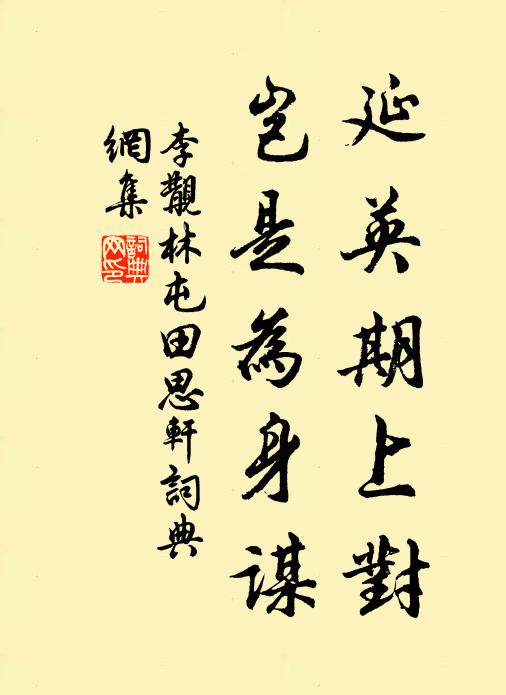 延英期上對
豈是為身謀
李觀林屯田思軒詞典
網集
詞典网印